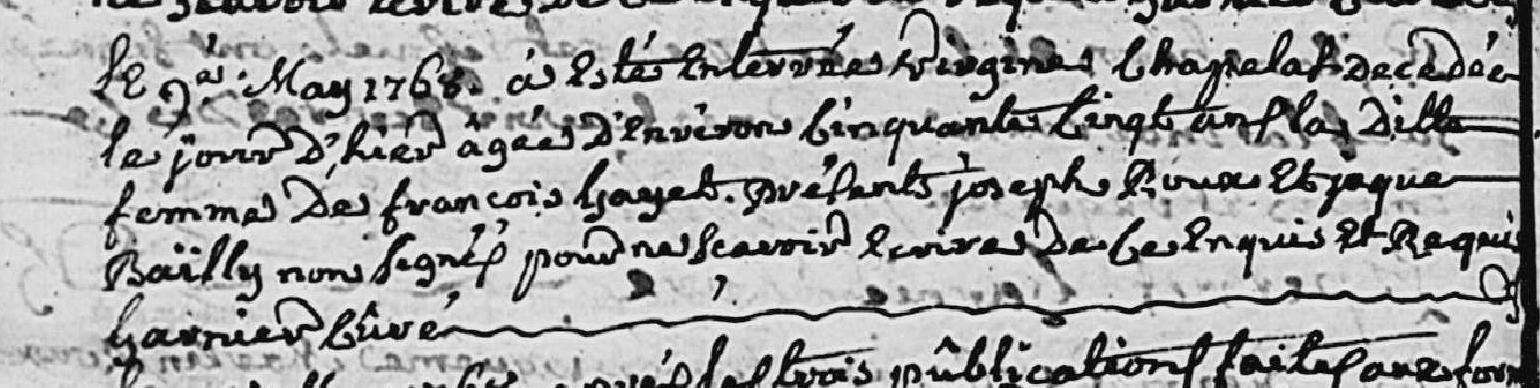 le 9e. May 1768. à esté enterrée virgine Chapelat decedée
le jour d'hier âgée d'environ Cinquante Cinqt ans la ditte
femme de françois Gayet. présents joseph Roux et jaque
Baïlly non signés pour ne scavoir ecrire de ce enquis et Requis
Garnier Curé
trois pûblications faites